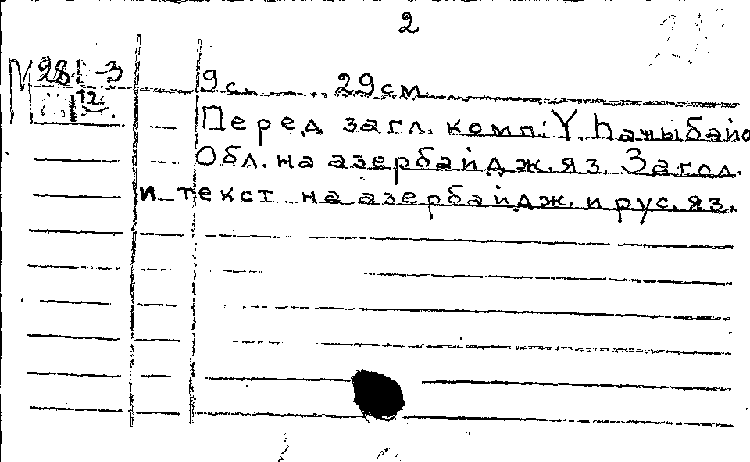 2
М 281-3
12
9 с. 29 см
Перед загл. комп: Ү. Һаҹыбәйо
Обл. на азербайдж. яз. Загол.
и текст на азербайдж. и рус. яз.